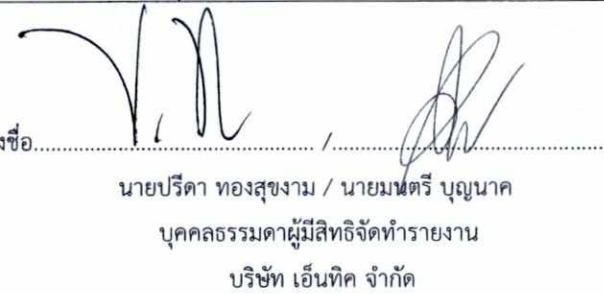 งชื่อ............................................ / ............................................
นายปรีดา ทองสุขงาม / นายมนตรี บุญนาค
บุคคลธรรมดาผู้มีสิทธิจัดทำรายงาน
บริษัท เอ็นทิค จำกัด